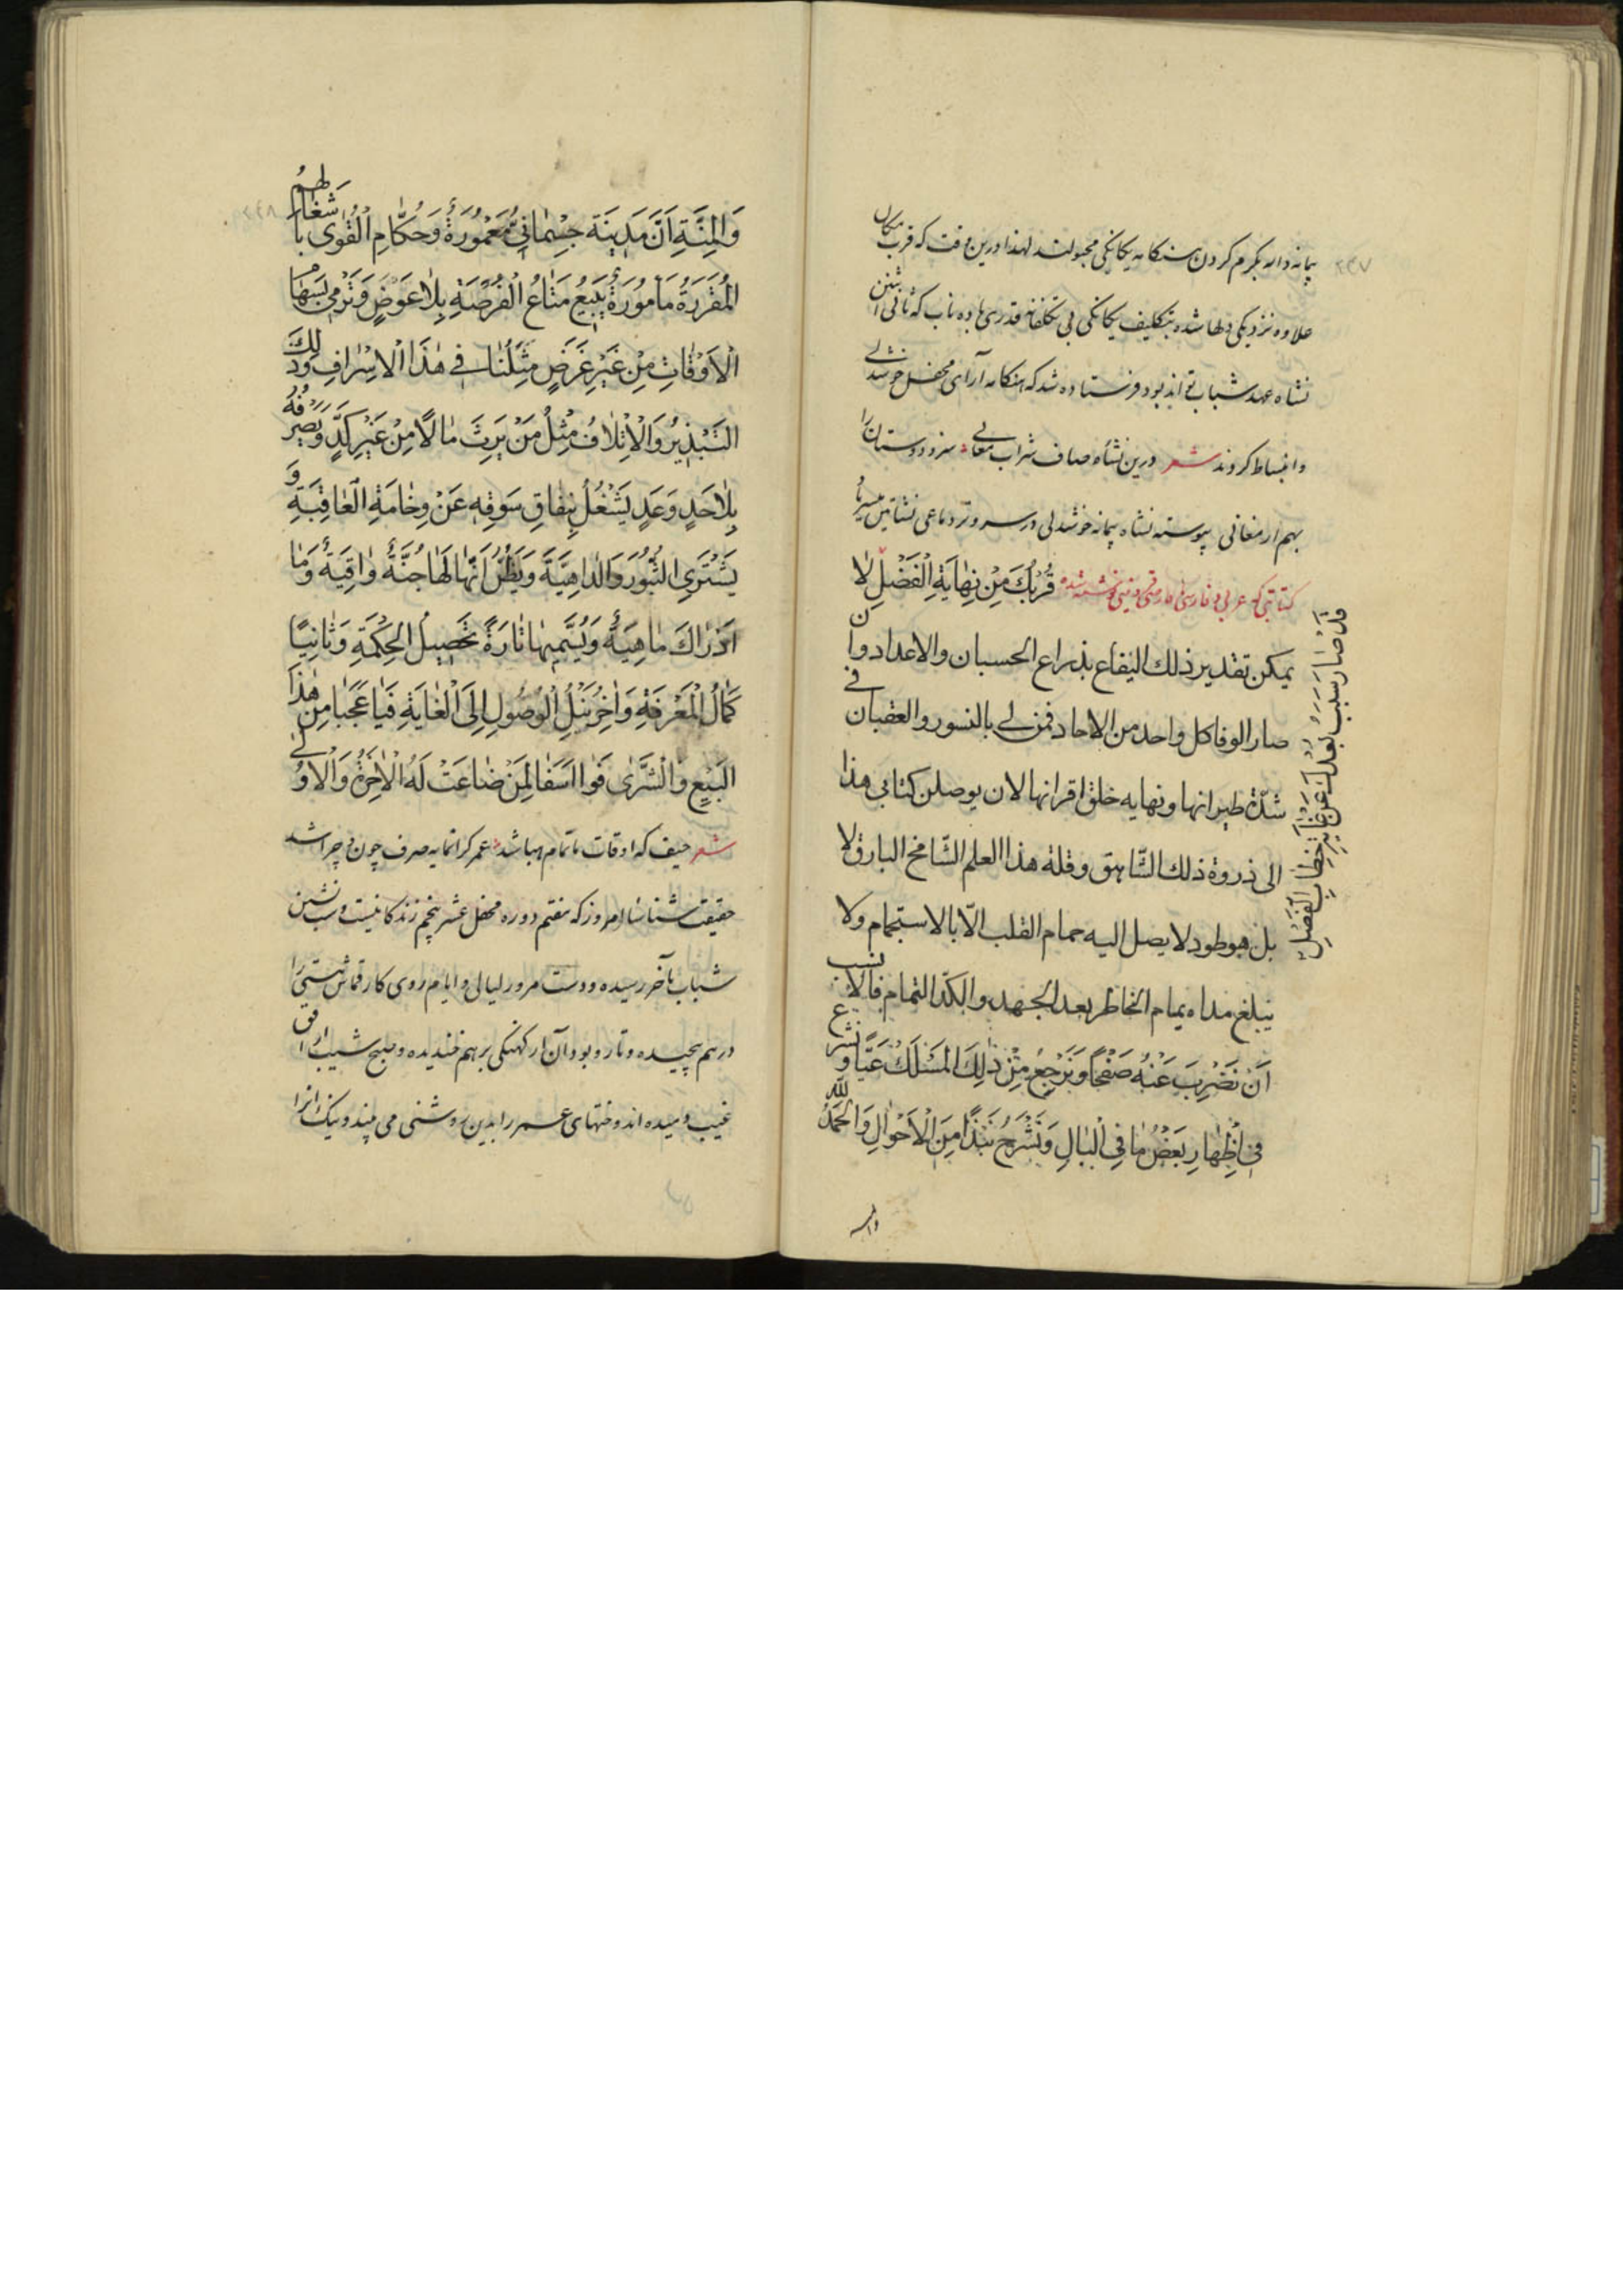 ۲۴۷
پیمانه دار بگرم کردن هنگامه یکانگی مجبولند لهذا درین وقت که قرب مکان
علاوه نزدیکی دلها شده بتکلیف یکانگی بی تکلفانه قدری باده ناب که ثانی اثنین
نشاه عهد شباب تواند بود فرستاده شد که هنکامه آرای محفل خوشدلی
و انبساط کردند شعر درین نشأه صاف شراب معانی سزد دوستان را
بهم ارمغانی پیوسته نشاه پیمانه خوشدلی در سر و تردماغی نشاتین میسر باد
کتابتی که عربی و فارسی نوشته شده قُرْبُكَ مِنْ نِهَايَةِ الْفَضْلِ لا
يمكن تقدير ذلك اليفاع بذراع الحسبان والاعداد وان
صار الوفا كل واحد من الاحاد فمن لي بالنسور والعقبان في
شدّة طيرانها ونهايه خلق اقرانها لان يوصلن كتابي هذا
الى ذروة ذلك الشّاهق وقلة هذا العلم الشّامخ البارق لا
بل هو طود لا يصل اليه حمام القلب الّا بالاستجمام ولا
يبلغ مداه يمام الخاطر بعد الجهد والكدّ التمام فالانسب
اَنْ نَضْرِبَ عَنْهُ صَفْحًا وَنَرْجِعُ مِنْ ذٰلِكَ المَسْلَكْ عَيًّا ونشرع
فِي اِظْهَارِ بَعْضُ مَا فِي الْبَالِ وَنَشْرَحُ نَبْذًا مِنَ الْاَحْوَالِ وَالْحَمْدُ لِلّٰه
قَدْ صَارَ سَبَبُ بُعْدِكَ عَنْ خِطَابِ الفَضْلِ
والمنه
۲۴۸
وَالمِنَّةِ اَنَّ مَدِينَة جِسْمَانِي مَعْمُورَةٌ وَحُكَّامِ الْقُوٰى بِاَشْغَالِهِمُ
المُقَرَرَةُ مَأمُورَةٌ يَبِيعُ مَتَاعُ الْفُرْصَةِ بِلَا عَوَضٍ وَتَرْمِي بِسَهَامُ
الْاَوْقَاتِ مِنْ غَيْرِ غَرَضٍ مَثَلُنَا فِي هٰذَا الْاِسْرَافِ وَذٰلِكَ
التَبْذِيرُ وَالْاِتْلَافُ مِثْلُ مَنْ يَرِثَ مَالًا مِنْ غَيْرِ كَدٍّ وَيَصْرِفُهُ
بِلَا حَدٍ وَعَدٍ يَشْغُلُ بِنِفَاقِ سَوقِهِ عَنْ وِخَامَةِ الْعَاقِبَةِ وَ
يَشْتَرِي الثُّبُورَ وَالدَاهِيَّةَ وَيَظُنُّ اَنَّهَا لَهَا جُنَّةٌ وَاقِيَةٌ وَمَا
اَدْرٰاكَ مَاهِيَةْ وَيُسَمِّيهَا تَارَةً تَحْصِيلُ الحِكْمَةِ وَثَانِيًا
كَمَالُ الْمَعْرِفَةِ وَاٰخِرُ نَيْلُ الْوُصُولِ اِلَى الْغَايَةِ فَيَا عَجَبَا مِنْ هٰذَا
البَيْعِ وَالْشَّرٰى فَوَا اَسَفَا لِمَنْ ضَاعَتْ لَهُ الْاٰخِرَةُ وَالْاُولٰى
شعر حیف که اوقات ما تمام هبا شد عمر گرانمایه صرف چون و چرا شد
حقیقت شناسا امروز که هفتم دوره محفل عشر پنجم زندکانیست و شب نشین
شباب بآخر رسیده و دست مرور لیالی و ایام روی کار قماش هستی را
درهم پیچیده و تار و پود آن از کهنکی برهم خندیده و صبح شیب از افق
غیب دمیده اندوختهای عمر را بدین روشنی می بیند و نیک انرا